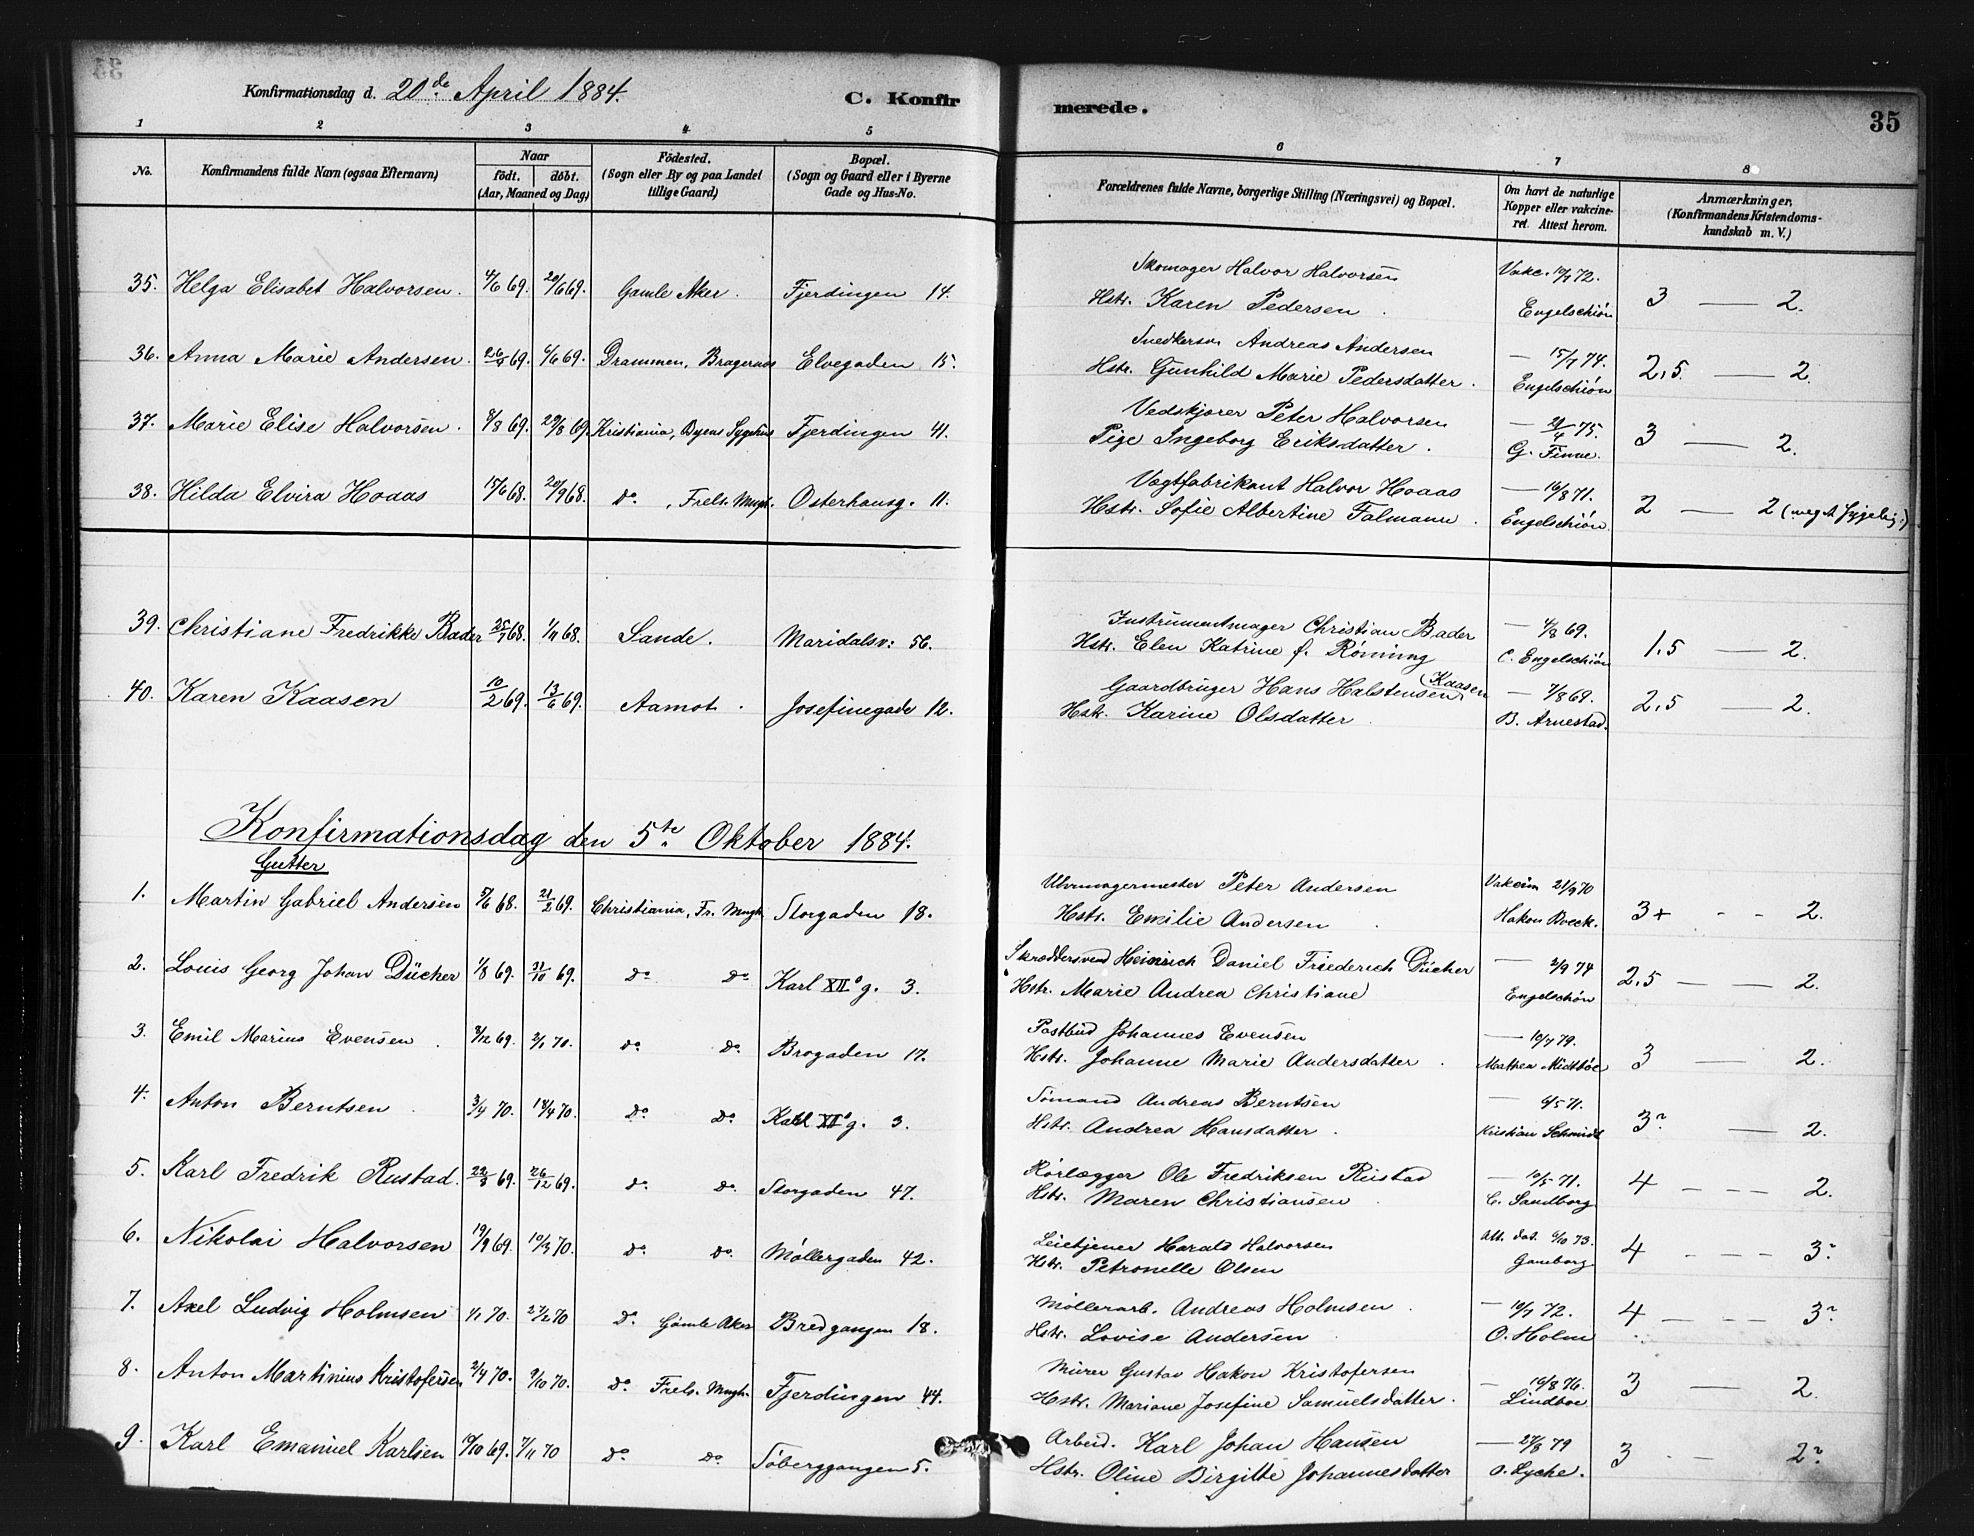 Konfirmationsdag d. 20de April 1884.
C. Konfirmerede.
35
1 2 3 4 5 6 7 8
No.
Konfirmandens fulde Navn (ogsaa Efternavn)
Naar
født. døbt.
(Aar, Maaned og Dag)
Fødested.
(Sogn eller By og paa Landet
tillige Gaard)
Bopæl.
(Sogn og Gaard eller i Byerne
Gade og Hus-No.
Forældrenes fulde Navne, borgerlige Stilling (Næringsvei) og Bopæl.
Om havt de naturlige
Kopper eller vakcine-
ret. Attest herom.
Anmærkninger.
(Konfirmandens Kristendoms-
kundskab m. V.)
35. Helga Elisabet Halvorsen. 4/6 69. 20/6 69. Gamle Aker. Fjerdingen 14. Skomager Halvor Halvorsen Vakc. 17/7 72. 3 — 2.
Hstr. Karen Pedersen. Engelschiøn
36. Anna Marie Andersen. 26/4 69. 6/6 69. Drammen, Bragernæs Elvegaden 15. Snedkersv. Andreas Andersen — 15/7 74. 2,5. — 2.
Hstr. Gunhild Marie Pedersdatter. Engelschiøn
37. Marie Elise Halvorsen. 8/8 69. 29/8 69. Kristiania, Byens Sygehus Fjerdingen 41. Vedskjører Peter Halvorsen — 21/4 75. 3 — 2.
Pige Ingeborg Eriksdatter. G. Finne.
38. Hilda Elvira Hoaas 15/6 68. 20/9 68. do , Frels. Mngh. Osterhausg. 11. Vægtfabrikant Halvor Hoaas — 16/8 71. 2 — 2
Hstr. Sofie Albertine Falmann. Engelschiøn.
39. Christiane Fredrikke Bader 25/7 68. 1/11 68. Sande. Maridalsv. 56. Instrumentmager Christian Bader — 4/8 69. 1,5 — 2.
Hstr. Elen Katrine f. Rønning C. Engelschiøn
40. Karen Kaasen 10/2 69. 13/6 69. Aamot. Josefinegade 12. Gaardbruger Hans Halstensen (Kaasen) — 7/8 69. 2,5 — 2.
Hstr. Karine Olsdatter. B. Arnestad.
Konfirmationsdag den 5te Oktober 1884.
Gutter
1. Martin Gabriel Andersen 5/6 68. 21/2 69. Christiania, Fr. Mngh. Storgaden 18. Uhrmagermester Peter Andersen Vakcin 21/9 70 3+ - - 2.
Hstr. Emilie Andersen. Hakon Boeck.
2. Louis Georg Johan Dücher 1/8 69. 31/10 69. do do Karl XIIs g. 3. Skræddersvend Heinrich Daniel Friederich Dücher — 2/9 74 2,5 — — 2.
Hstr. Marie Andrea Christiane Engelschøn
3. Emil Marius Evensen. 3/12 69. 2/1 70. do do Brogaden 17. Postbud Johannes Evensen — 10/7 79. 3 — 2.
Hstr. Johanne Marie Andersdatter. Mathea Midtbøe
4. Anton Berntsen. 3/4 70. 18/4 70. do do Karl XIIs g. 3. Sømand Andreas Berntsen — 6/5 71. 3? — 2.
Hstr. Andrea Hansdatter. Kristian Schmidt
5. Karl Fredrik Rustad. 22/3 69. 26/12 69. do do Storgaden 47. Rørlægger Ole Fredriksen Rustad — 10/5 71. 4 - - - 2.
Hstr. Maren Christiansen. C. Sandborg
6. Nikolai Halvorsen 19/9 69. 10/3 70. do do Møllergaden 42. Leietjener Harald Halvorsen Att. dat. 6/10 73. 4 - - - 3?
Hstr. Petronelle Olsen Ganeborg
7. Axel Ludvig Holmsen 1/1 70. 27/2 70 do Gamle Aker Bredgangen 18. Møllerarb. Andreas Holmsen. — 19/7 72. 4 - - - 3?
Hstr. Lovise Andersen. O. Holm
8. Anton Martinius Kristofersen 2/4 70. 9/10 70. do Frels. Mngh. Fjerdingen 44. Murer Gustav Hakon Kristofersen — 16/8 76. 3 — 2.
Hstr. Mariane Josefine Samuelsdatter. Lindboe
9. Karl Emanuel Karlsen 10/10 69. 7/11 70 do do Søberggangen 5. Arbeid. Karl Johan Hansen — 27/8 79 3 - - 2?
Hstr. Oline Birgitte Johannesdatter O. Lyche.